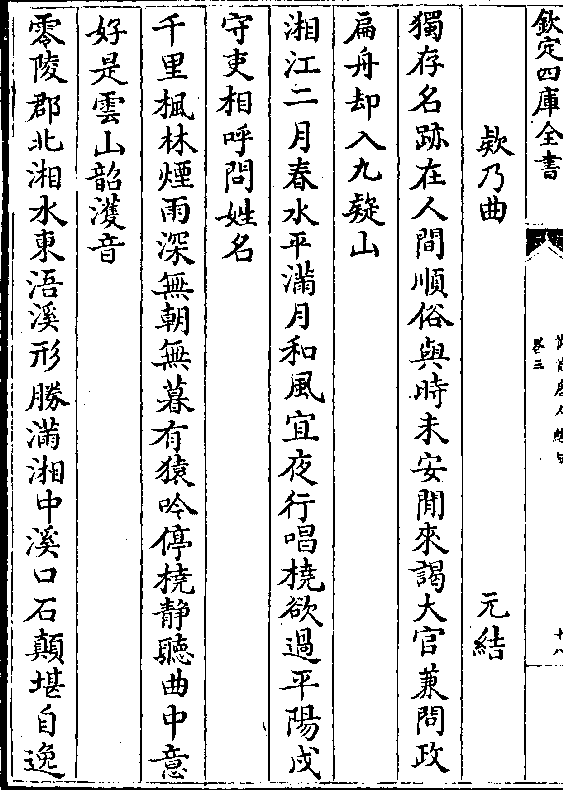 欽定四庫全書
卷三
十八
欵乃曲
元結
獨存名跡在人間順俗與時未安閒來謁大官兼問政
扁舟却入九疑山
湘江二月春水平滿月和風宜夜行唱橈欲過平陽戍
守吏相呼問姓名
千里楓林煙雨深無朝無暮有猿吟停橈静聽曲中意
好是雲山韶濩音
零陵郡北湘水東浯溪形勝滿湘中溪口石顛堪自逸